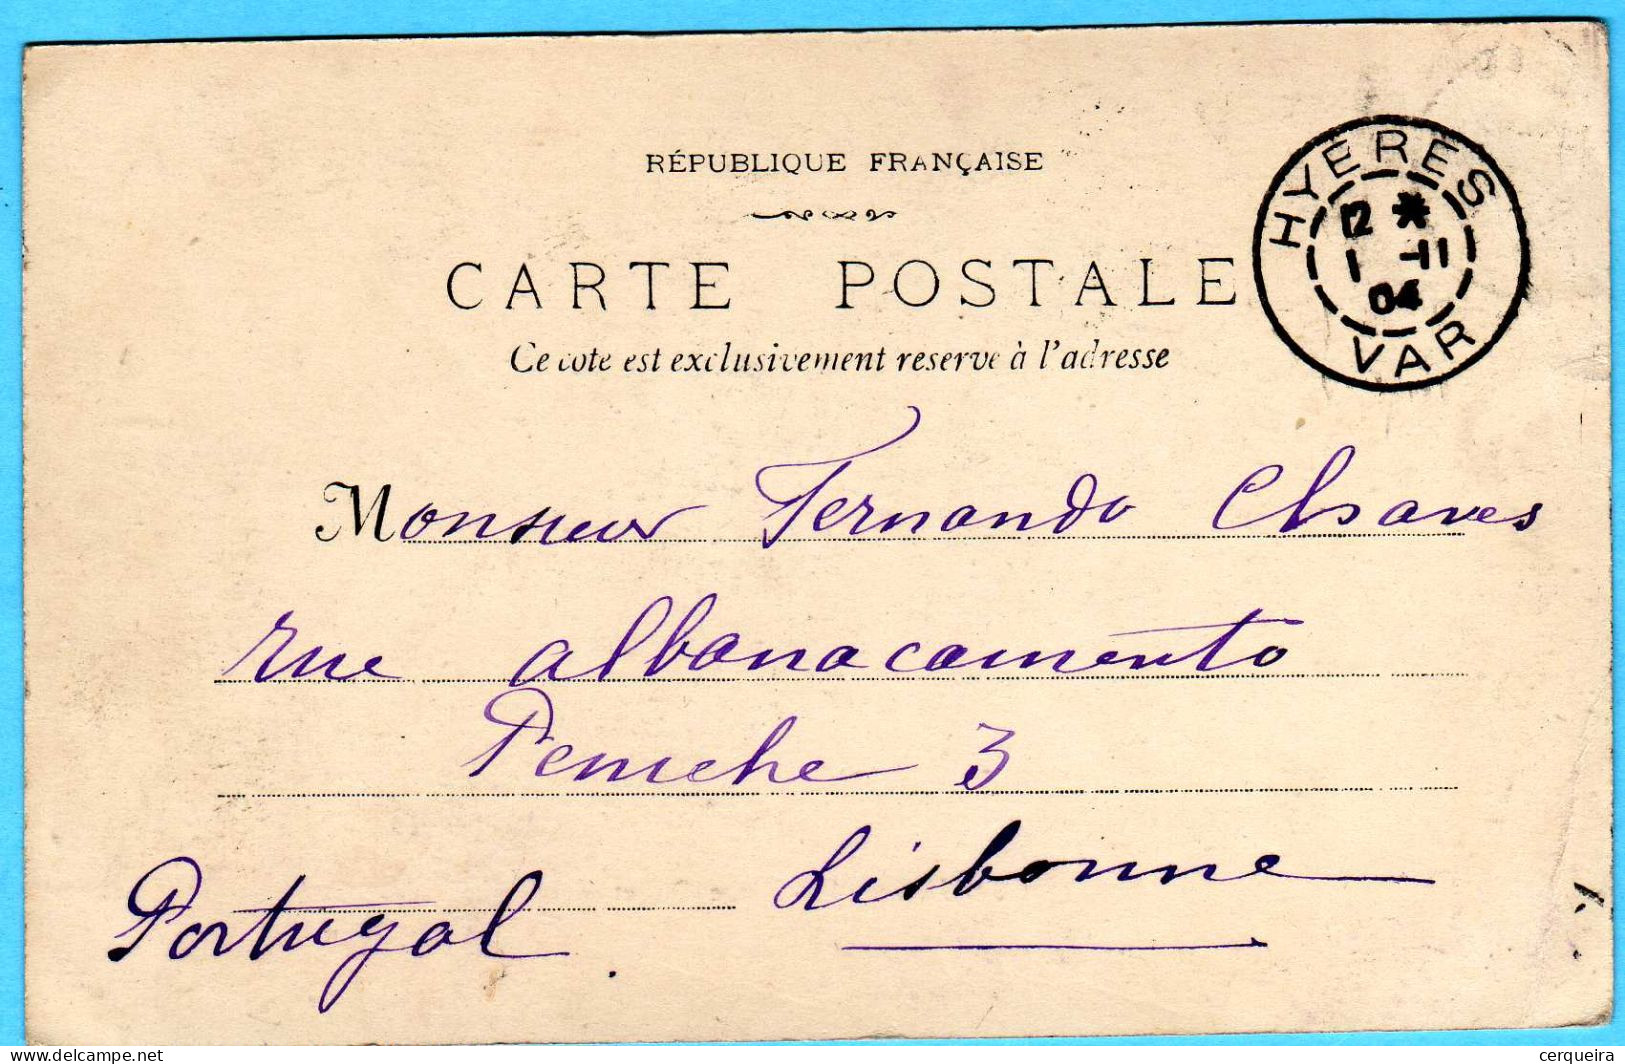 RÉPUBLIQUE FRANÇAISE
CARTE POSTALE
Ce cote est exclusivement reserve à l'adresse
HYÈRES
12 *
1 -11
04
VAR
Monsieur Fernando Chaves
rue albanacamento
Peniche 3
Lisbonne
Portugal.
www.delcampe.net
cerqueira